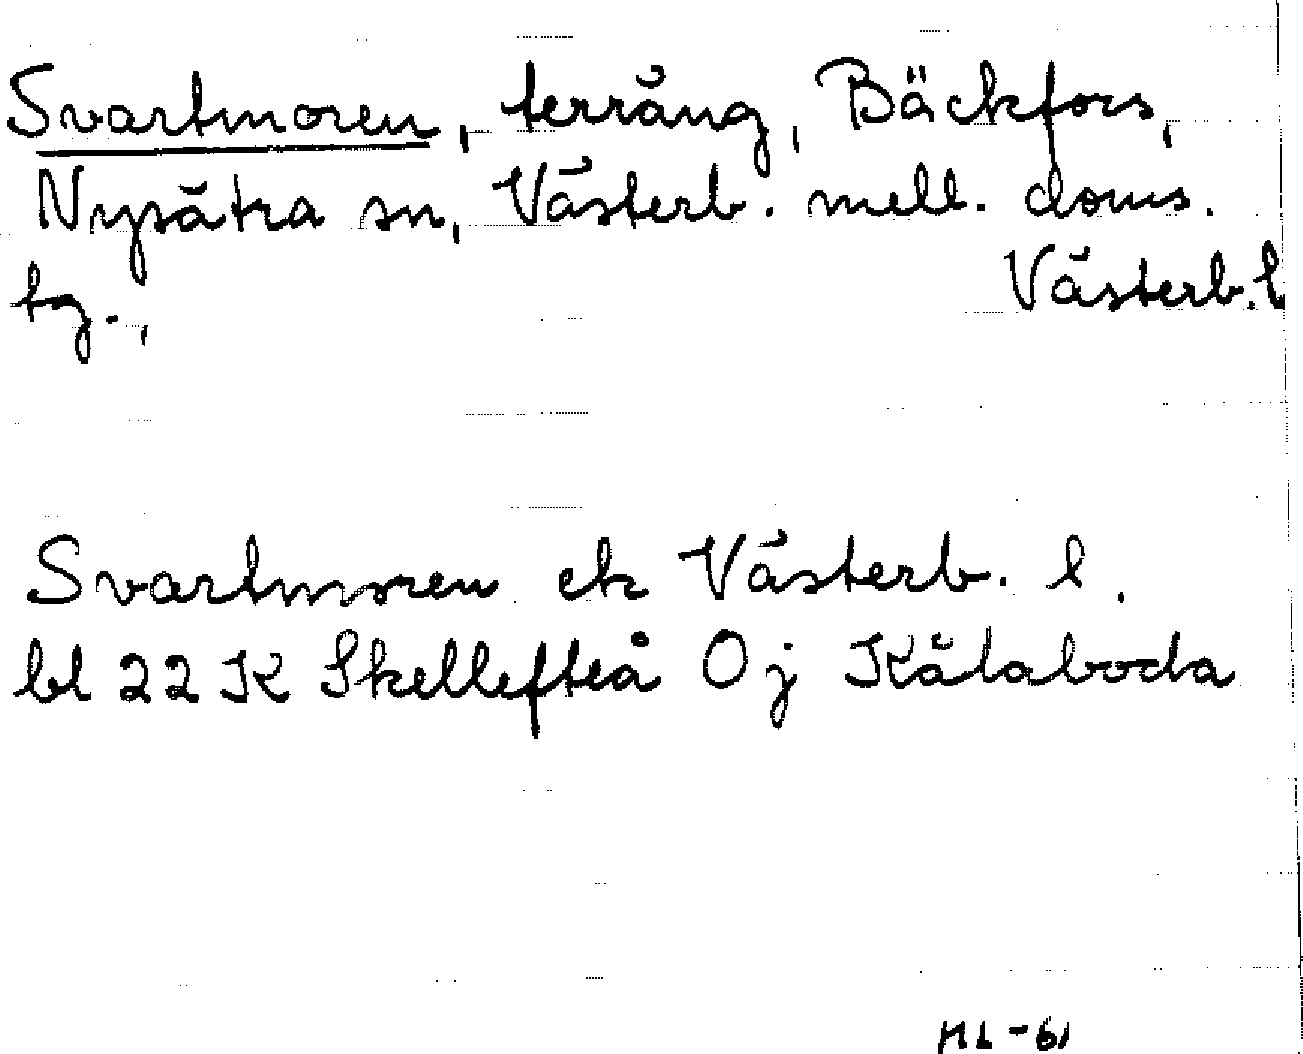 Svartmoren, terräng, Bäckfors,
Nysätra sn, Västerb. mell. doms.
tg., Västerb. l
Svartmoren ek Västerb. l.
bl 22 K Skellefteå 0 j Kålaboda
ML-61